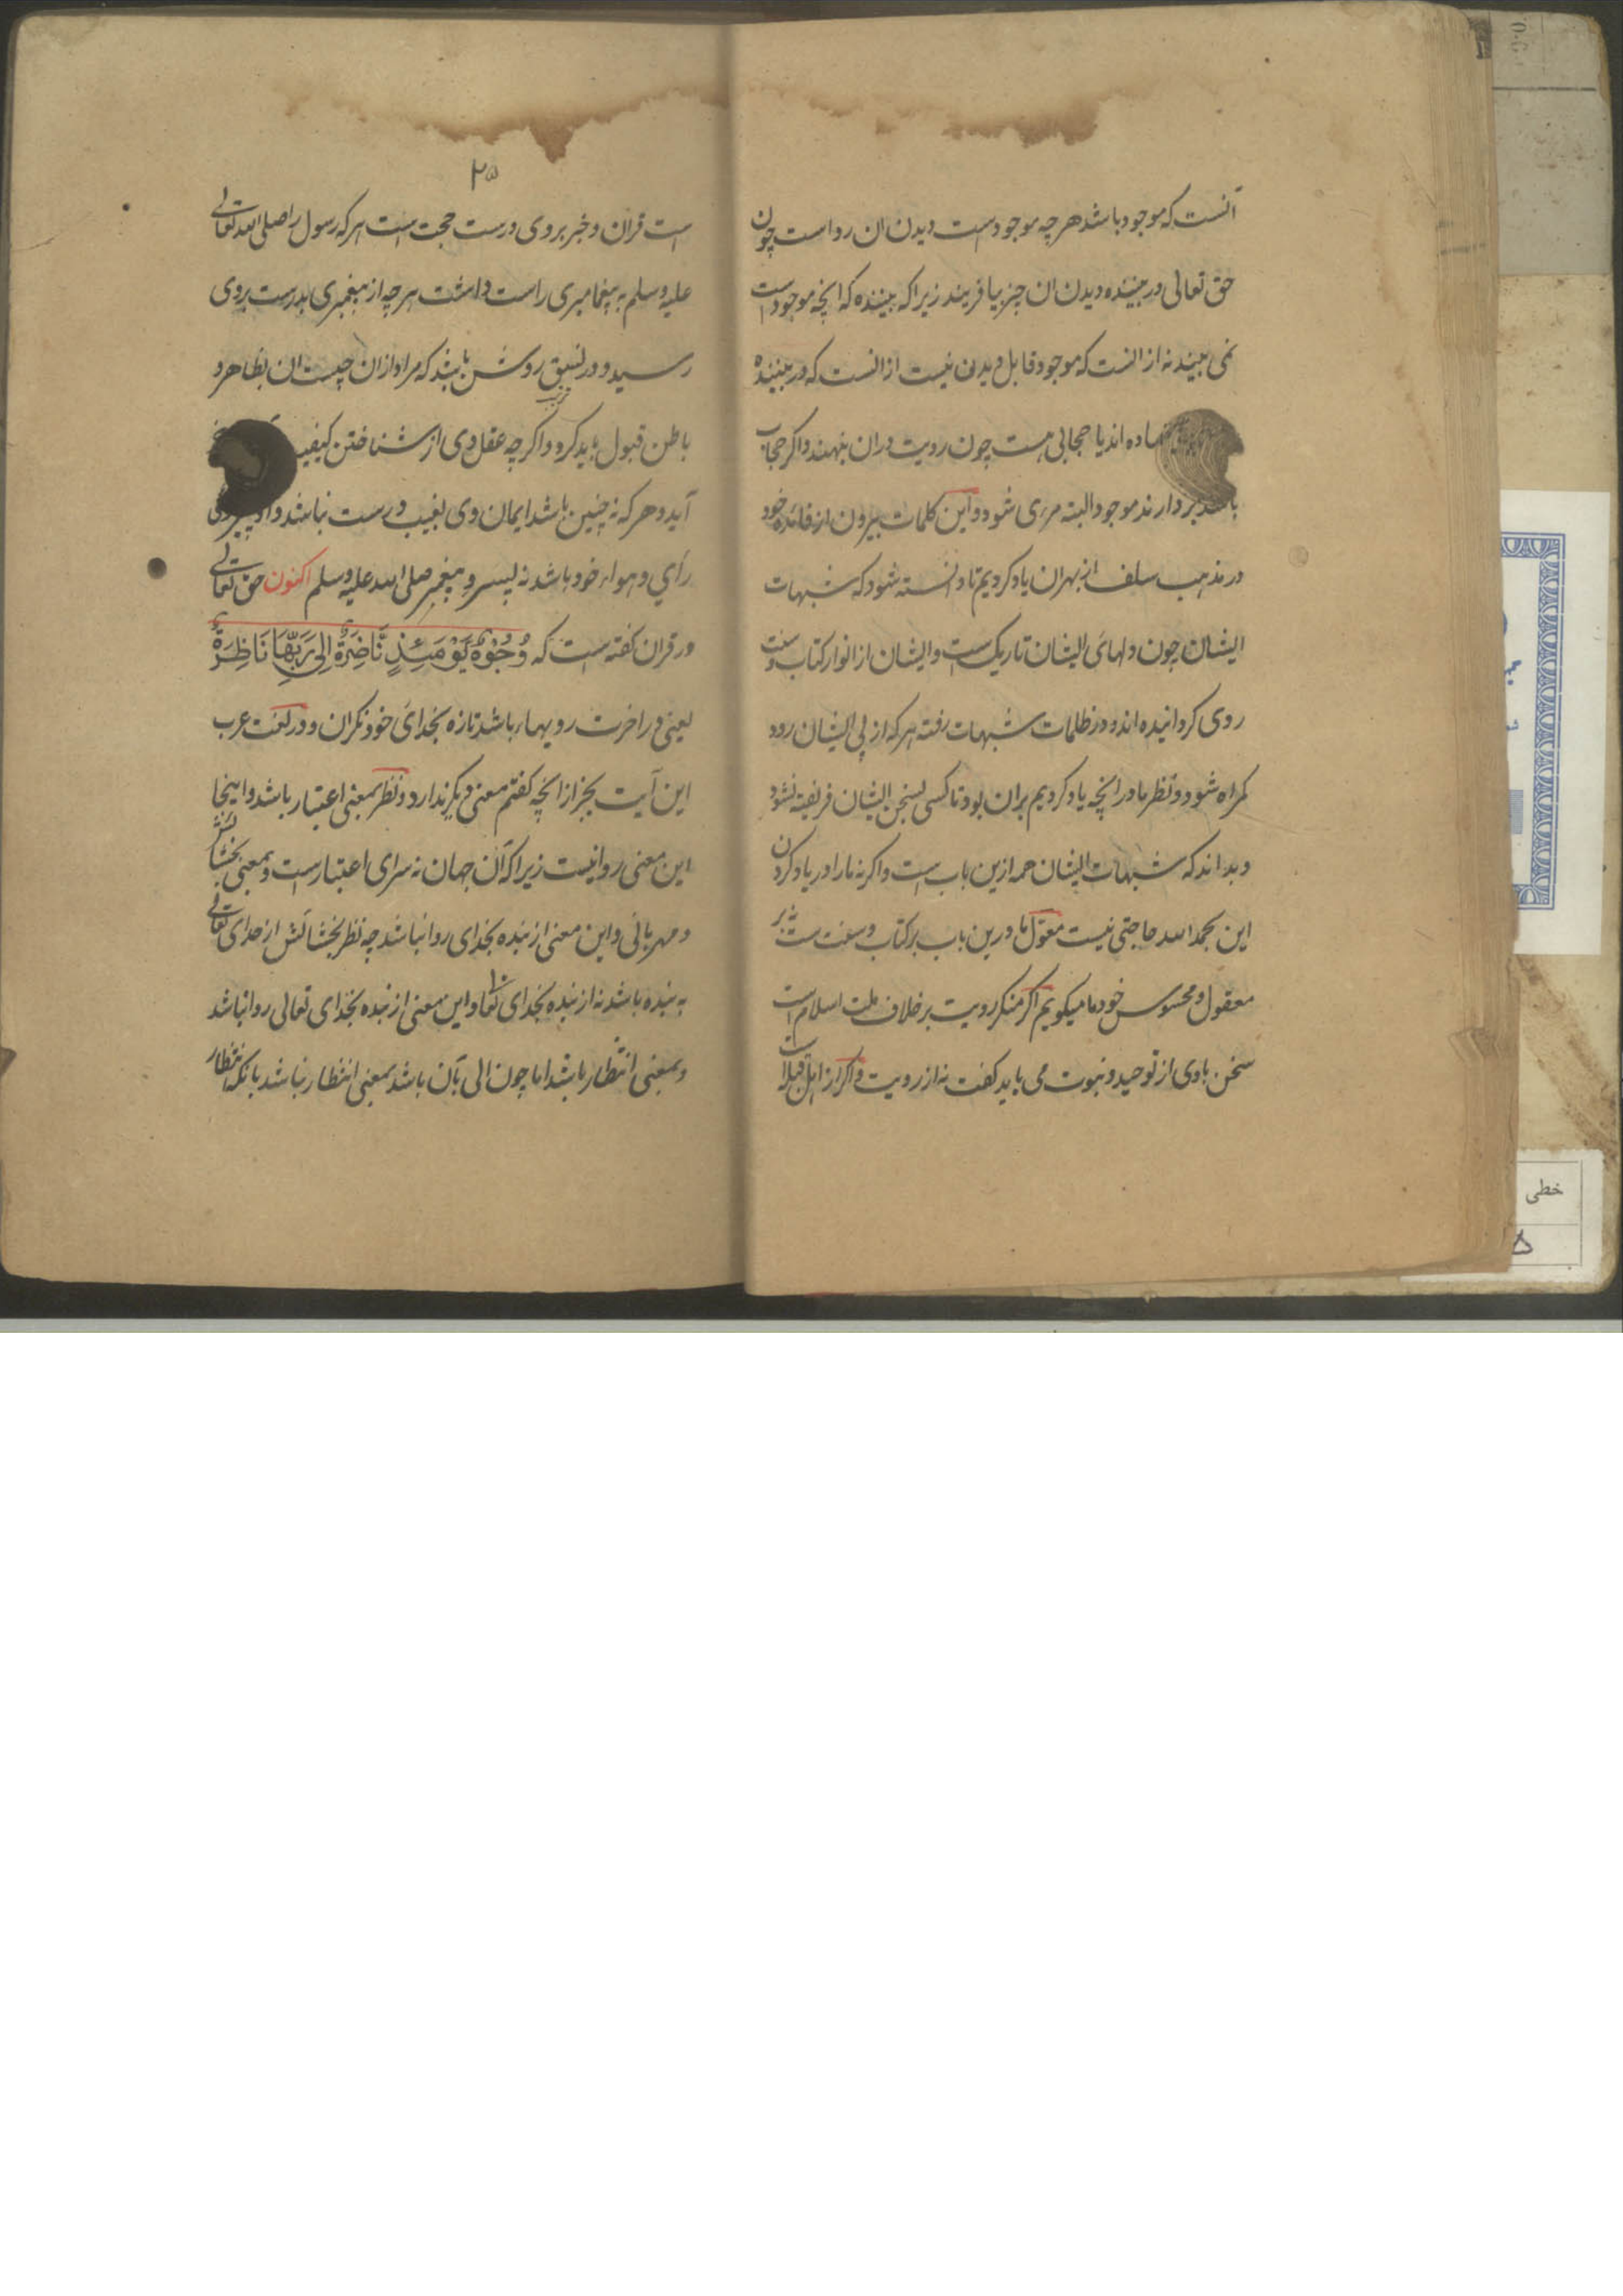 آنست که موجود باشد هر چه موجودست دیدن ان رواست چون
حق تعالی در بیننده دیدن ان چیز بیافریند زیرا که بیننده که انچه موجود است
نمی بیند نه از انست که موجود قابل دیدن نیست از انست که در بیننده
اده اند یا حجابی هست چون رویت دران بنهند و اکر حجاب
بردارند موجود البته مرءی شود و این کلمات بیرون از قاعده خود
در مذهب سلف از بهر ان یاد کردیم تا دانسته شود که شبهات
ایشان چون دلهای ایشان تاریک است و ایشان از انوار کتاب و سنت
روی کردانیده اند و در ظلمات شبهات رفته هر که از پی ایشان رود
کمراه شود و نظر ما در انچه یاد کردیم بران بود تا کسی بسخن ایشان فریفته نشود
و بداند که شبهات ایشان همه ازین باب است و اکر نه ما را در یاد کردن
این بحمد الله حاجتی نیست معول ما درین باب بر کتاب و سنت ست نه بر
معقول و محسوس خود ما میکویم اکر منکر رویت بر خلاف ملت اسلام است
سخن با وی از توحید و نبوت می باید کفت نه از رویت و اکر از اهل قبله
۲۵
است قران و خبر بر وی درست حجت است هر که رسول را صلی الله تعالی
علیه وسلم به پیغامبری راست داشت هر چه از پیغمبری بدرست بروی
رسید و در نسق روشن باشد که مراد ازان چیست ان بظاهر و
باطن قبول باید کرد و اکر چه عقل وی از شناختن کیفیت
آید و هر که نه چنین باشد ایمان وی بغیب درست نباشد و او پیرو
رأی و هواء خود باشد نه پسرو پیغمبر صلی الله علیه وسلم اکنون حق تعالی
در قران کفته است که وُجُوْهٌ یَّوْمَئِذٍ نَّاضِرَةٌ اِلٰی رَبِّهَا نَاظِرَةٌ
یعنی در اخرت رویهاء باشد تازه بخدای خود نکران و در لغت عرب
این آیت بجز از انچه کفتم معنی دیکر ندارد و نظر بمعنی اعتبار باشد و اینجا
این معنی روا نیست زیرا که آن جهان نه سرای اعتبارست و بمعنی بخشایش
و مهربانی و این معنی از بنده بخدای روا نباشد چه نظر بخشایش از خدای تعالی
به بنده باشد نه از بنده بخدای تعا و این معنی از بنده بخدای تعالی روا نباشد
و بمعنی انتظار باشد اما چون الی بآن باشد بمعنی انتظار نباشد بانکه انتظار
خطی